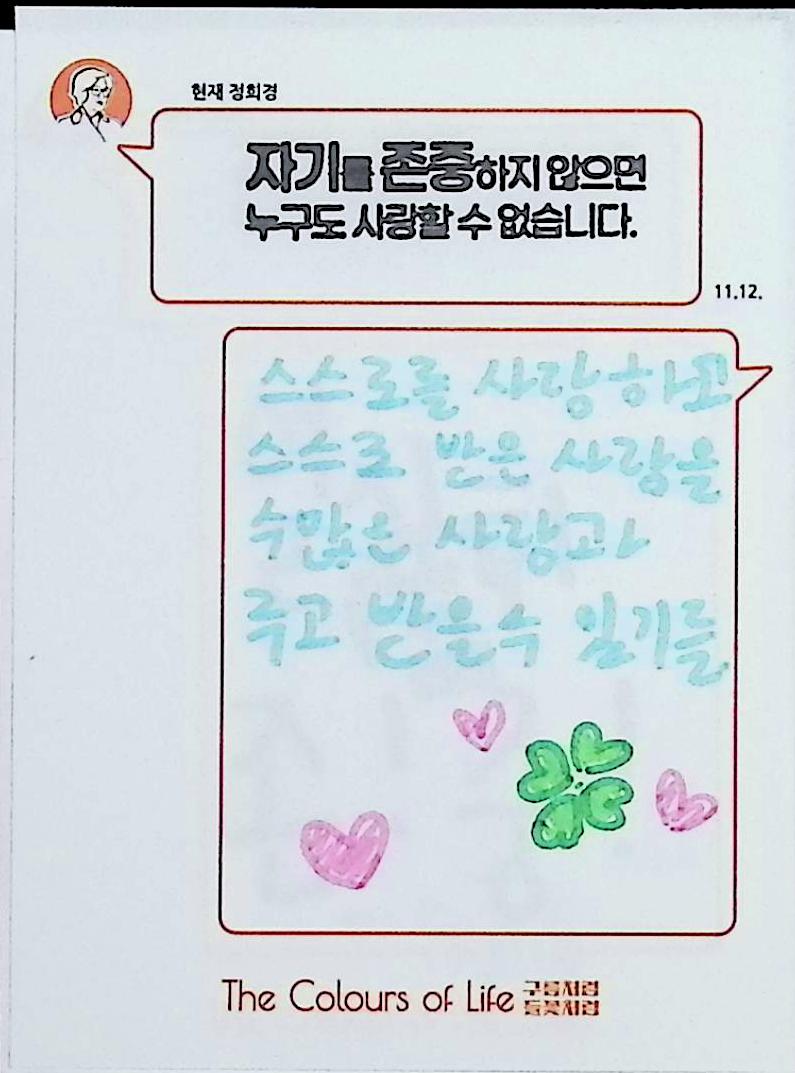 현재 정희경
자기를 존중하지 않으면
누구도 사랑할 수 없습니다.
11.12.
스스로를 사랑하고
스스로 받은 사랑을
수많은 사람과
주고 받을수 있기를
The Colours of Life 구름처럼
들꽃처럼